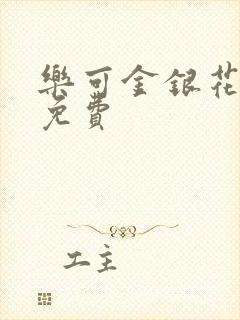 樂可金銀花
免費
工主